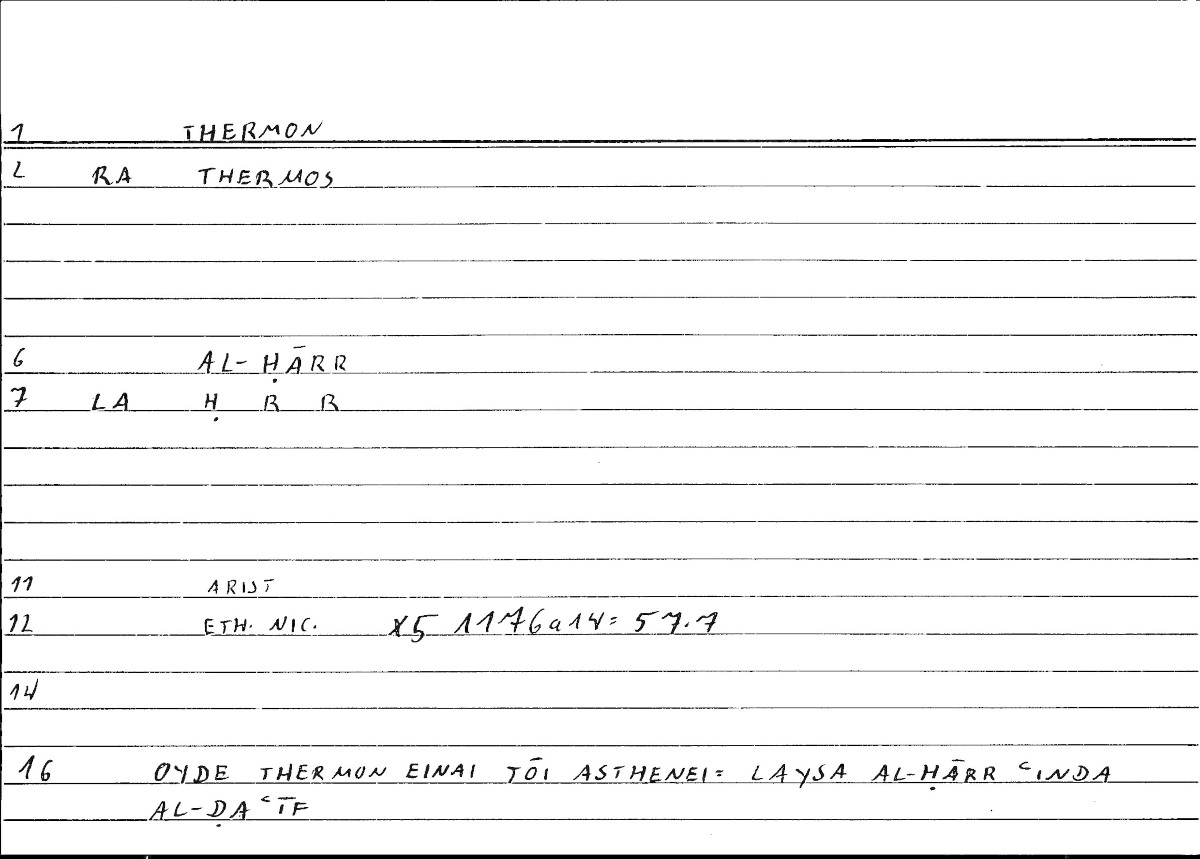 1 THERMON
2 RA THERMOS
6 AL-ḤĀRR
7 LA Ḥ R R
11 ARIST
12 ETH. NIC. X5 1176a14= 57.7
14
16 OYDE THERMON EINAI TŌI ASTHENEI= LAYSA AL-ḤĀRR ʿINDA
AL-ḌAʿĪF